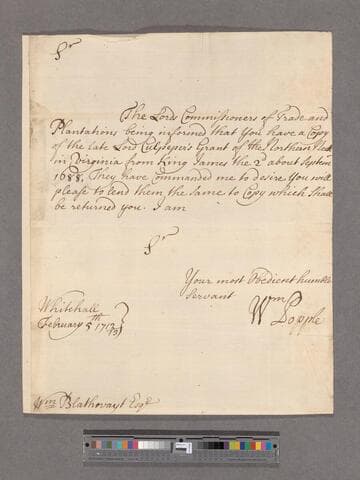 Sr
The Lords Commissioners of Trade and
Plantations being informed that You have a Copy
of the late Lord Culpeper's Grant of the Northern Neck
in Virginia from King James the 2d about Septem
1688. They have commanded me to desire You will
please to lend them the same to Copy which shall
be returned you. I am
Sr
Your most Obedient humble
Servant
Wm Popple
Whitehall
February 5th 1712/13
Wm Blathwayt Esqr